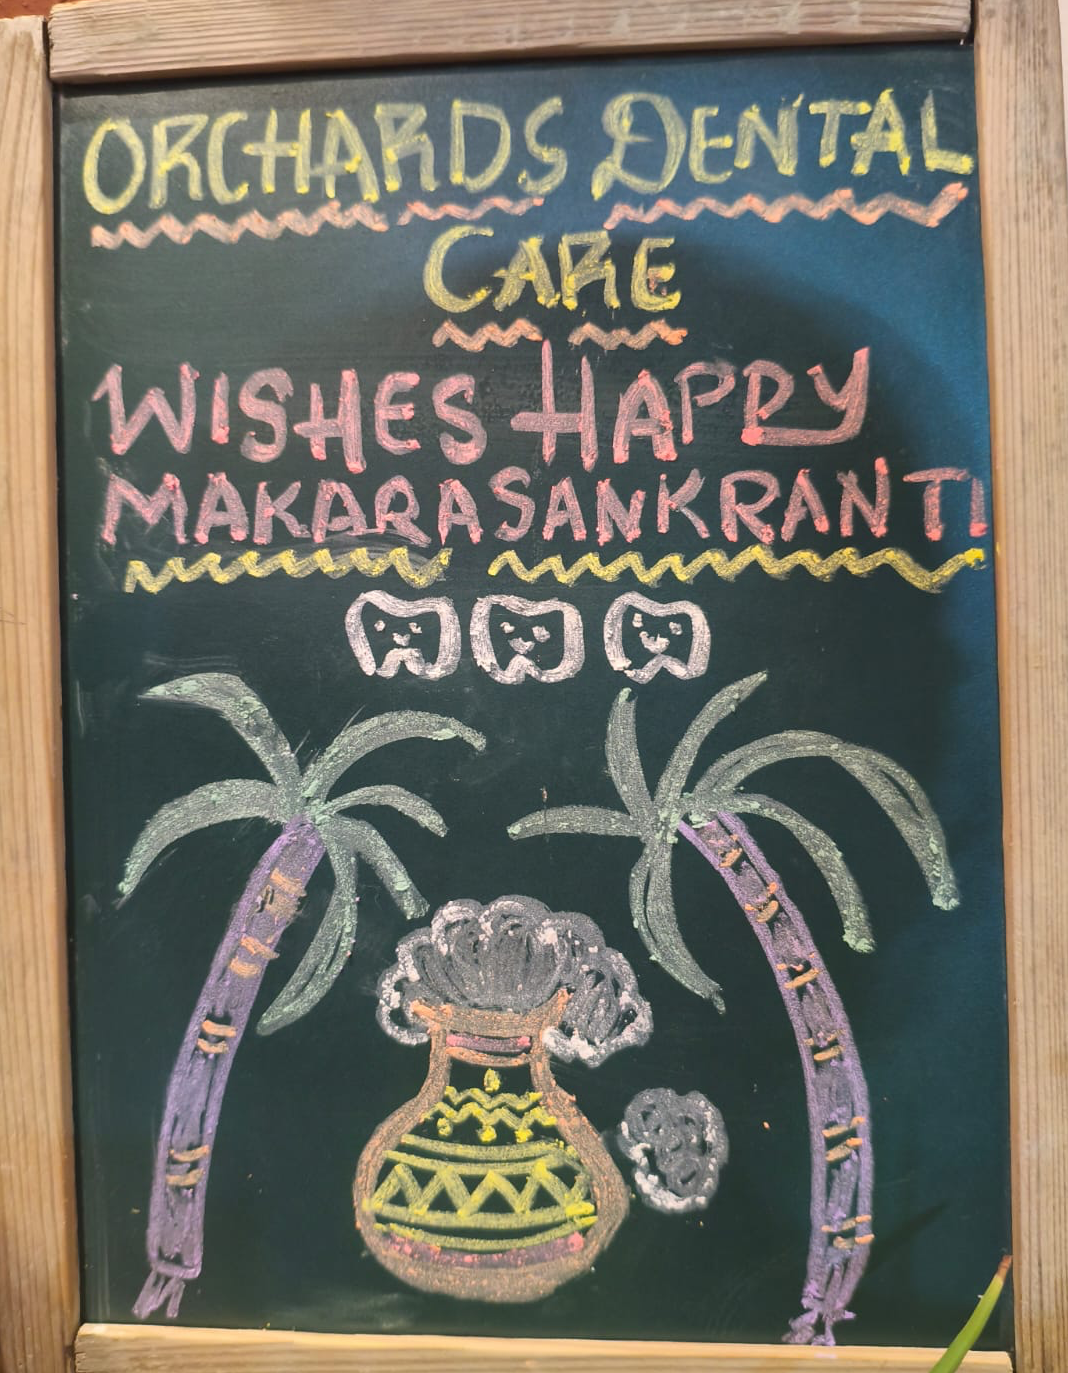 ORCHARDS DENTAL
CARE
WISHES HAPPY
MAKARASANKRANTI